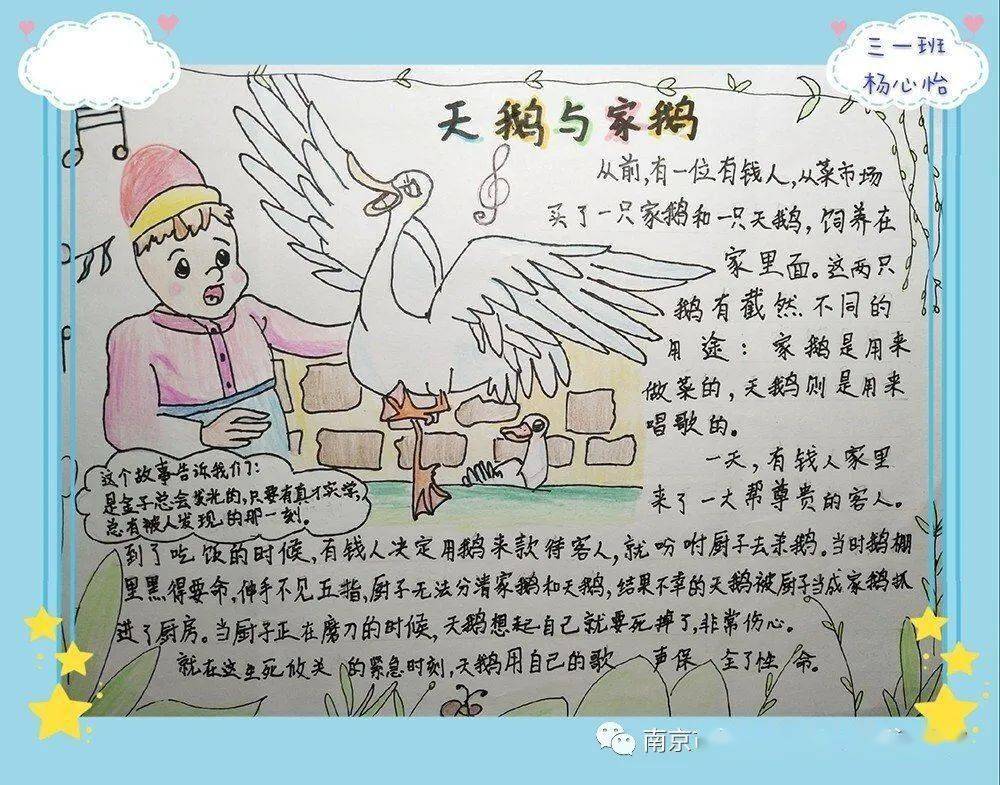 三一班
杨心怡
天鹅与家鹅
从前,有一位有钱人,从菜市场
买了一只家鹅和一只天鹅,饲养在
家里面。这两只
鹅有截然不同的
用途:家鹅是用来
做菜的,天鹅则是用来
唱歌的。
一天,有钱人家里
来了一大帮尊贵的客人。
到了吃饭的时候,有钱人决定用鹅来款待客人,就吩咐厨子去杀鹅。当时鹅棚
里黑得要命,伸手不见五指,厨子无法分清家鹅和天鹅,结果不幸的天鹅被厨子当成家鹅抓
进了厨房。当厨子正在磨刀的时候,天鹅想起自己就要死掉了,非常伤心。
就在这生死攸关的紧急时刻,天鹅用自己的歌声保全了性命。
这个故事告诉我们:
是金子总会发光的,只要有真才实学,
总有被人发现的那一刻。
南京i